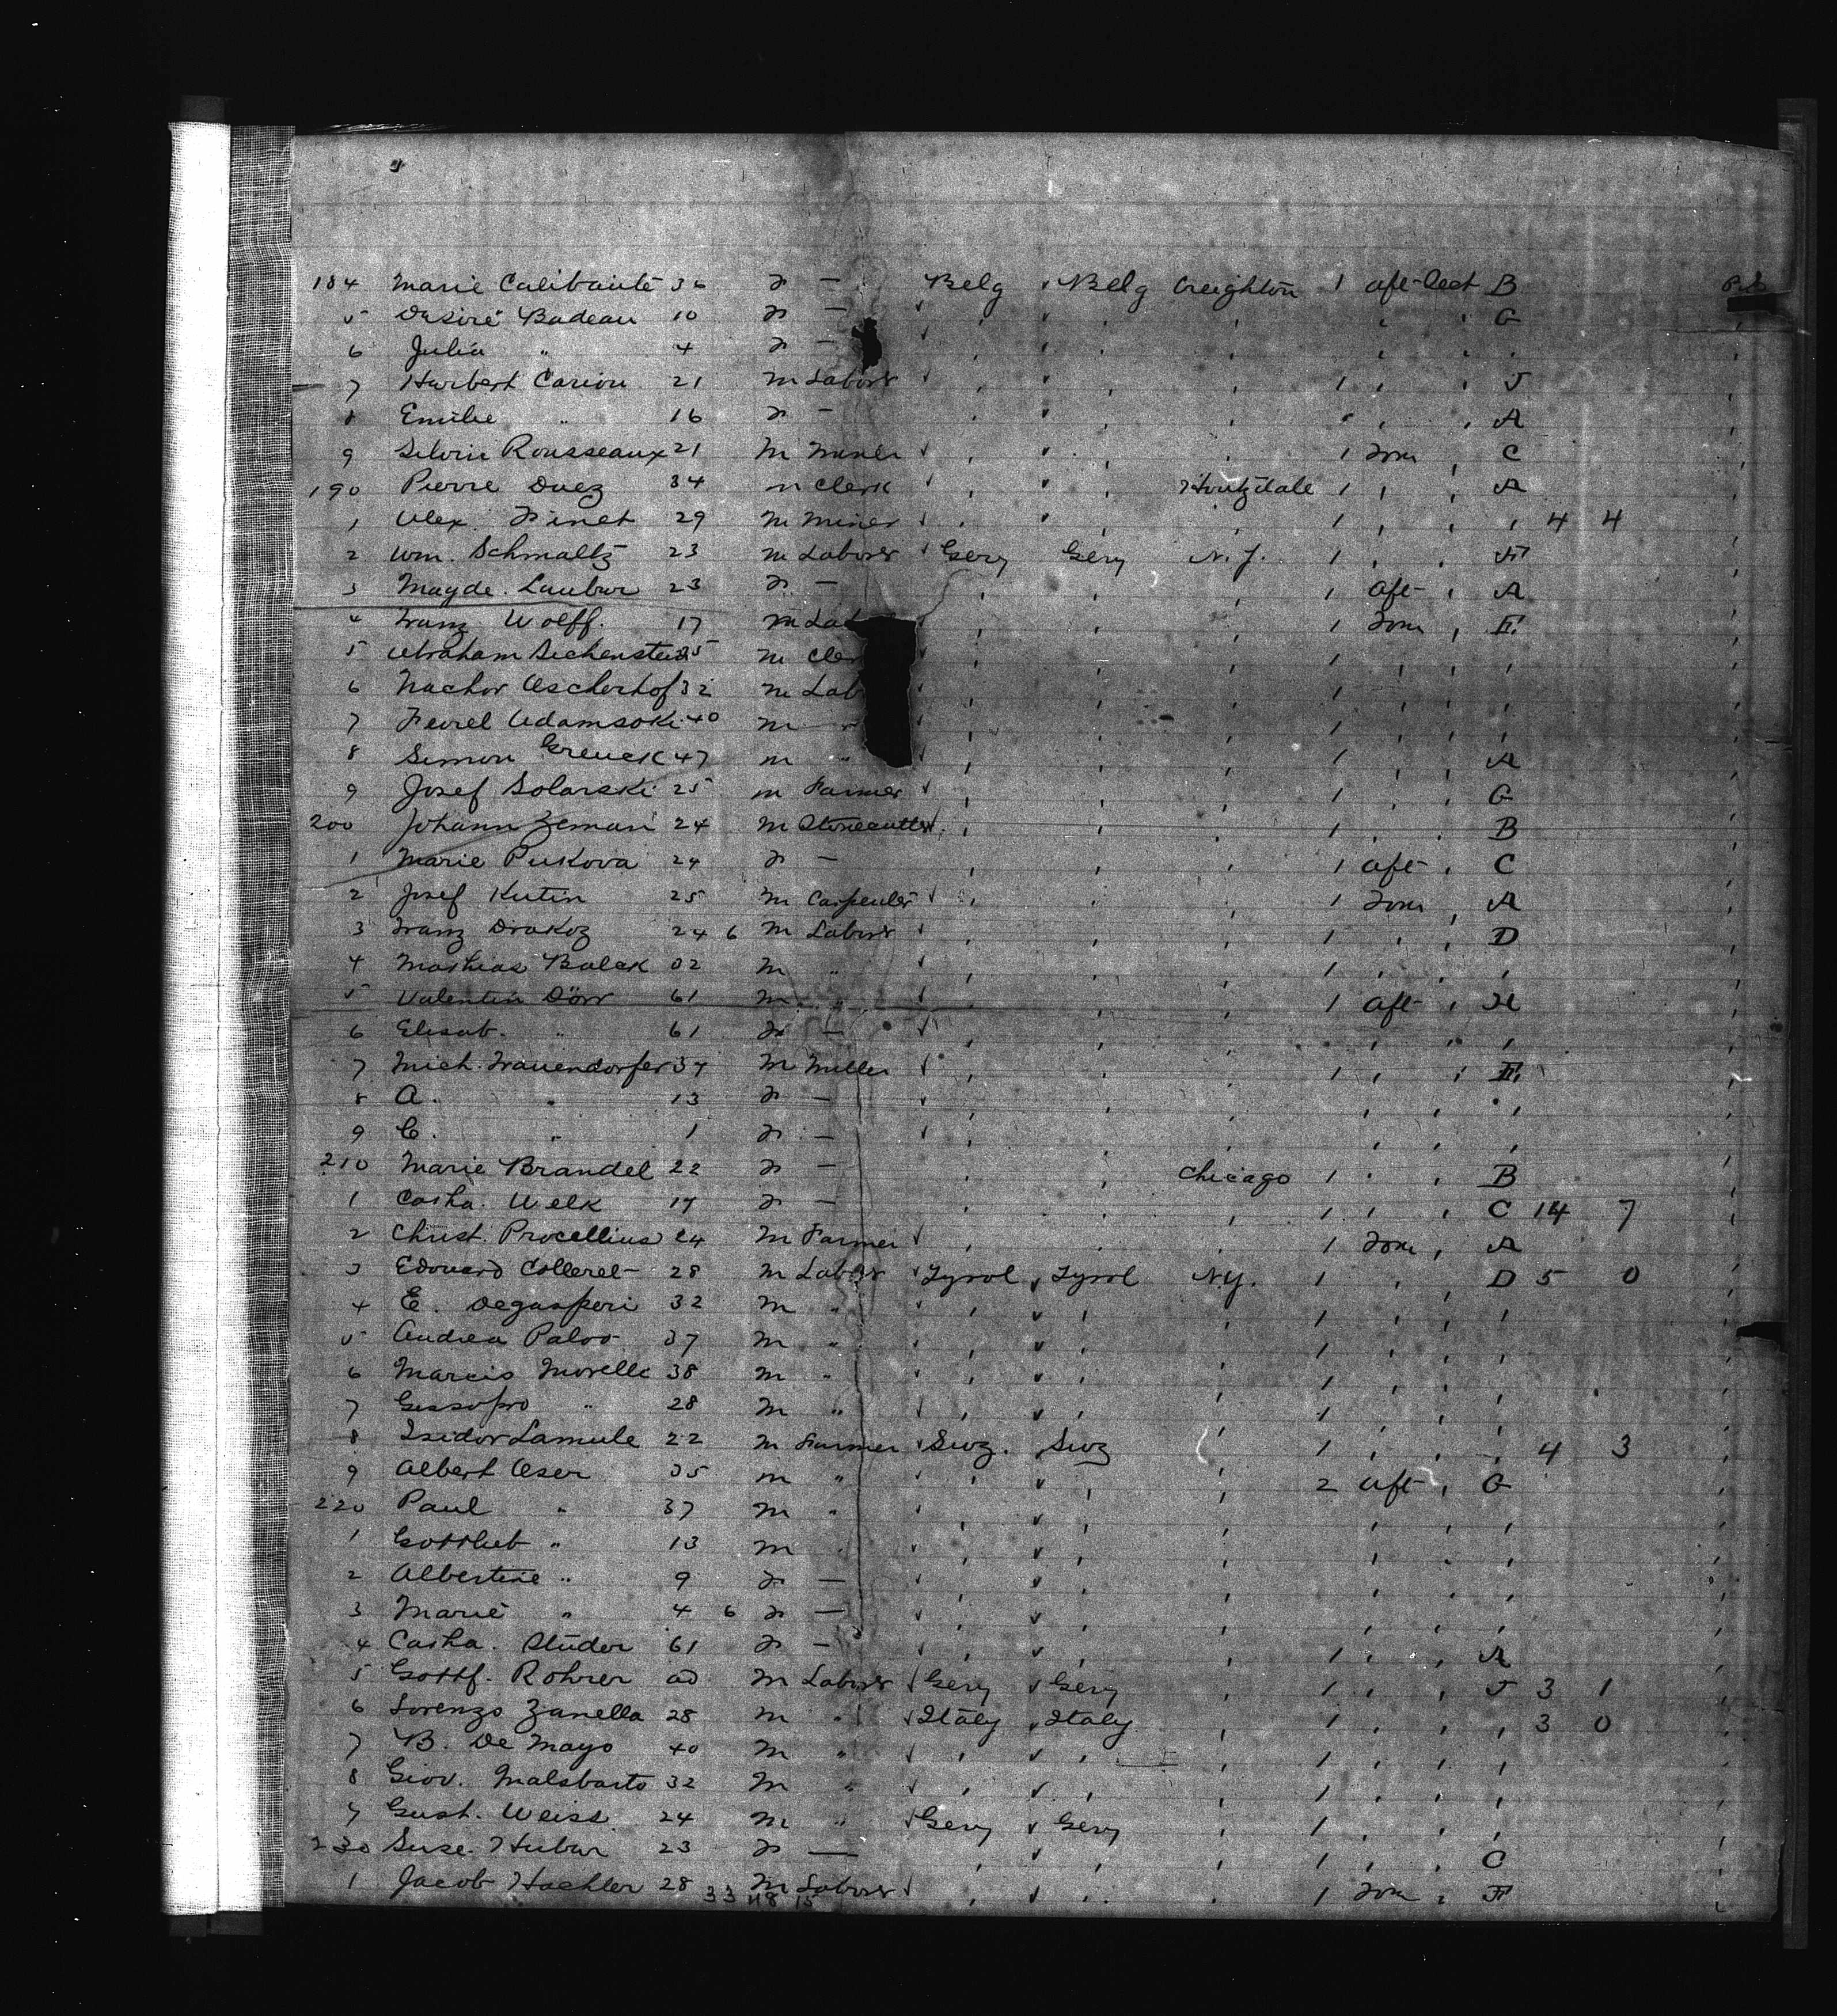 184 Marie Calibauté 36 F — Belg Belg Creighton 1 aft-Sect B
5 Desiré Badeau 10 F — G
6 Julia " 4 F —
7 Hurbert Carion 21 m Labour 1 J
8 Emilie " 16 F — A
9 Silvin Rousseaux 21 M Miner 1 For C
190 Pierre Duez 34 m Clerk Houtzdale 1 A
1 Alex. Finet 29 M Miner 1 4 4
2 Wm. Schmaltz 23 m Laborer Gery Gery N.J. 1 F
3 Magde. Laubur 23 F — 1 aft- A
4 Franz Wolff. 17 m Lab 1 For E
5 Abraham Sechenstein 25 m Cler 1
6 Nachor Ascherhof 32 m Lab 1
7 Adamsoki 40 m 1
8 Simon Greuek 47 m " 1 A
9 Josef Solarski 25 m Farmer 1 G
200 Johann Zeman 24 M Stonecutter 1 B
1 Marie Pukova 24 F — 1 aft- C
2 Josef Kutin 25 M Carpenter 1 For A
3 Franz Drakoz 24 6 M Labour 1 D
4 Mathias Balek 32 M " 1
5 Valentin Dörr 61 M " 1 aft- H
6 Elisab. " 61 F —
7 Mich. Frauendorfer 37 M Miller 1 E
8 A. " 13 F —
9 C. " 1 F —
210 Marie Brandel 22 F — Chicago 1 B
1 Catha. Welk 17 F — 1 C 14 7
2 Christ. Procellius 24 M Farmer 1 For A
3 Edouard Colleret 28 M Labour Tyrol Tyrol N.Y. 1 D 5 0
4 E. Degasperi 32 M " 1
5 Andrea Palvo 37 M " 1
6 Marcis Morelle 38 M " 1
7 Gessopro " 28 M " 1
8 Isidor Lamule 22 M Farmer Swz. Swz 1 4 3
9 Albert Aser 35 m " 2 aft- G
220 Paul " 37 M "
1 Gottlieb " 13 M
2 Albertine " 9 F —
3 Marie " 4 6 F —
4 Catha. Studer 61 F — 1 A
5 Gottf. Rohrer M Laborer Gery Gery 1 J 3 1
6 Lorenzo Zanella 28 M " Italy Italy 1 3 0
7 B. De Mayo 40 M " 1
8 Giov. Malsbarto 32 M " 1
9 Gust. Weiss 24 M " Gery Gery 1
230 Suse. Hubur 23 F — 1 C
1 Jacob Hachler 28 M Laborer 1 For F
33 118 15